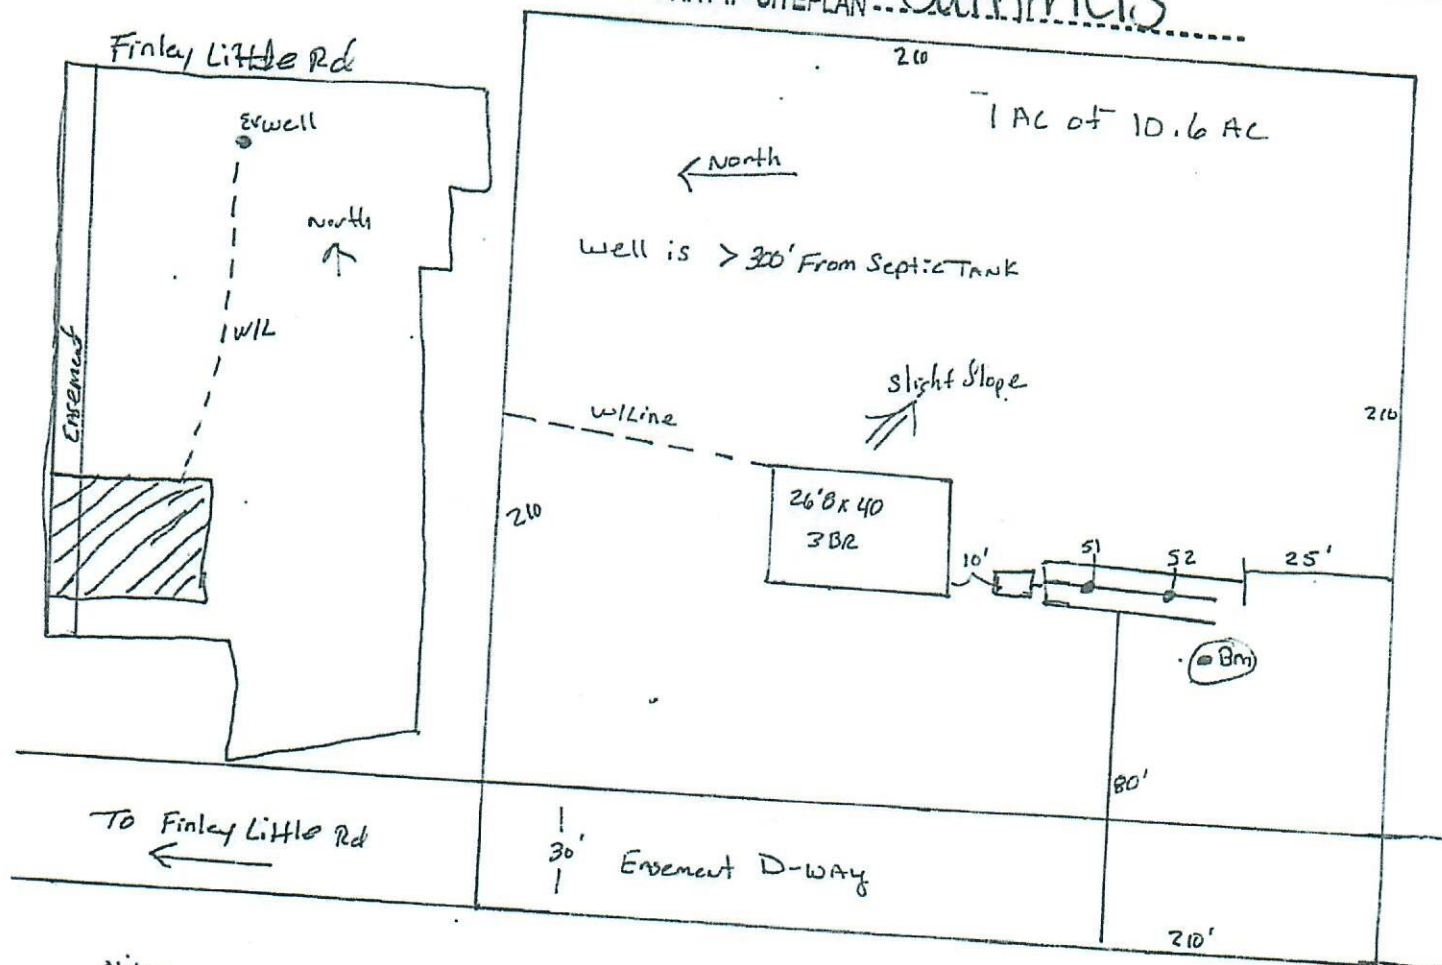 SITEPLAN
Finley Little Rd
well
North
W/L
Easement
210
1 AC of 10.6 AC
North
well is > 300' From Septic TANK
slight slope
W/Line
210
210
26'8 x 40
3 BR
10'
S1
S2
25'
Bm
80'
To Finley Little Rd
30'
Easement D-WAY
210'